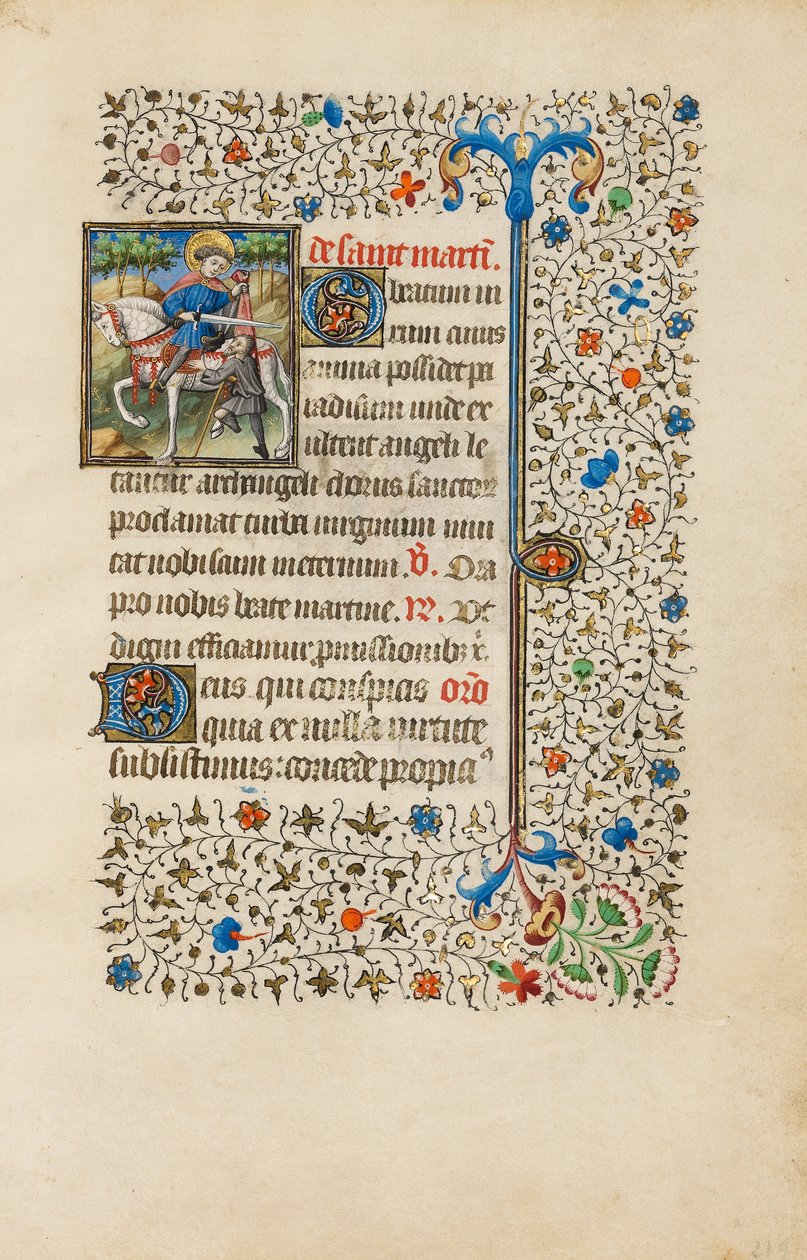 de saint marti.
O beatum ui
rum cuius
anima possidet pa
radisum unde ex
ultent angeli le
tantur archangeli chorus sanctor
proclamat turba uirginum inui
tat nobiscum ineternum. V. Ora
pro nobis beate martine. R. Vt
digni efficiamur pmissionib x.
Deus qui conspicis oro
quia ex nulla uirtute
subsistimus: concede propici